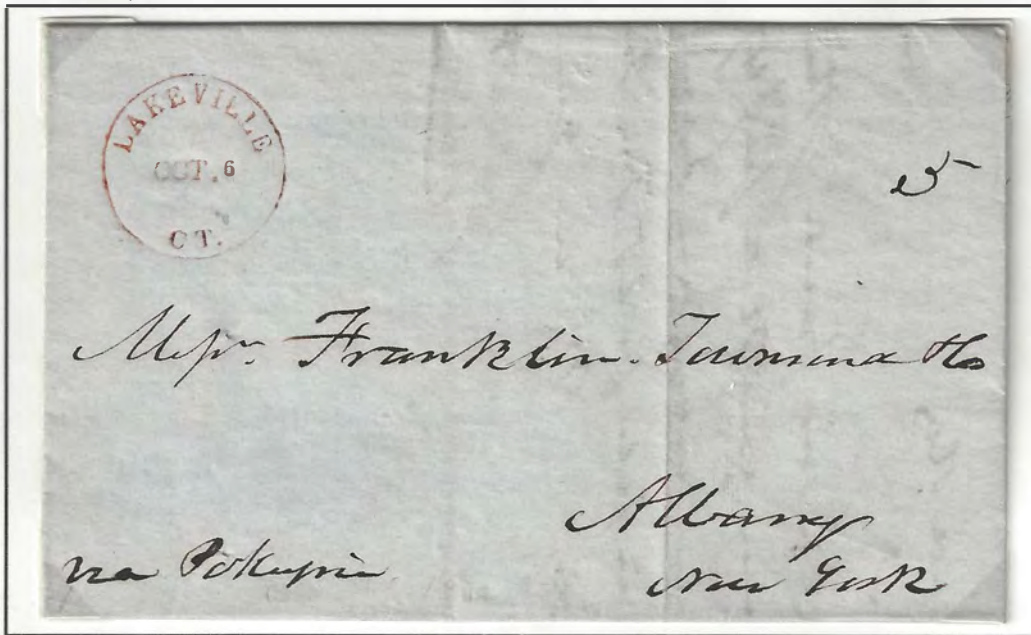 LAKEVILLE
OCT. 6
CT.
5
Messrs. Franklin Townsend & Co
Albany
New York
via Pokepsie